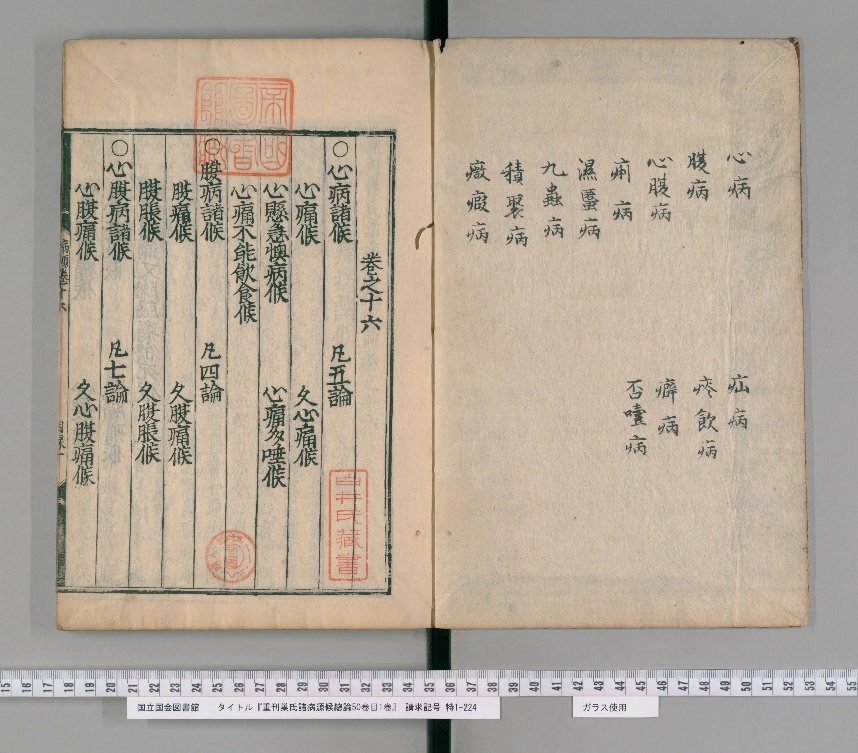 心病
腹病
心腹病
痢病
濕䘌病
九蟲病
積聚病
癥瘕病
疝病
痰飲病
癖病
否噎病
卷之十六
○心病諸候 凡五論
心痛候 久心痛候
心懸急懊痛候 心痛多唾候
心痛不能飲食候
○腹病諸候 凡四論
腹痛候 久腹痛候
腹脹候 久腹脹候
○心腹病諸候 凡七論
心腹痛候 久心腹痛候
病源卷十六
白井氏藏書
国立国会図書館 タイトル『重刊巣氏諸病源候總論50巻目1巻』 請求記号 特1-224
ガラス使用
15 16 17 18 19 20 21 22 23 24 25 26 27 28 29 30 31 32 33 34 35 36 37 38 39 40 41 42 43 44 45 46 47 48 49 50 51 52 53 54 55